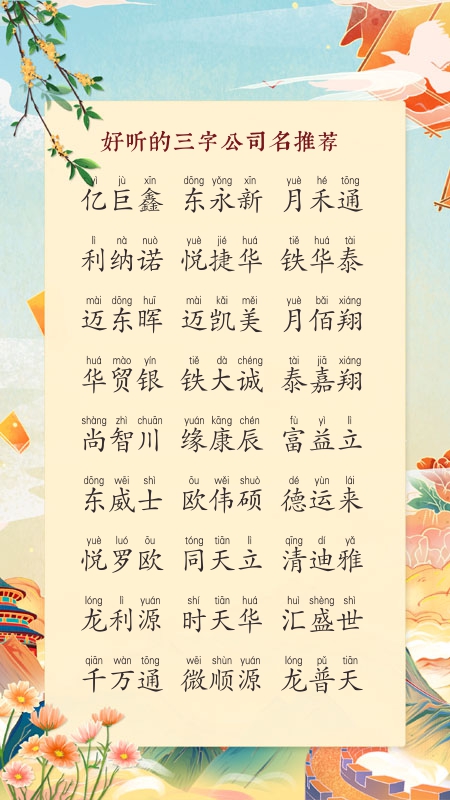 好听的三字公司名推荐
yì jù xīn dōng yǒng xīn yuè hé tōng
亿巨鑫 东永新 月禾通
lì nà nuò yuè jié huá tiě huá tài
利纳诺 悦捷华 铁华泰
mài dōng huī mài kǎi měi yuè bǎi xiáng
迈东晖 迈凯美 月佰翔
huá mào yín tiě dà chéng tài jiā xiáng
华贸银 铁大诚 泰嘉翔
shàng zhì chuān yuán kāng chén fù yì lì
尚智川 缘康辰 富益立
dōng wēi shì ōu wěi shuò dé yùn lái
东威士 欧伟硕 德运来
yuè luó ōu tóng tiān lì qīng dí yǎ
悦罗欧 同天立 清迪雅
lóng lì yuán shí tiān huá huì shèng shì
龙利源 时天华 汇盛世
qiān wàn tōng wēi shùn yuán lóng pǔ tiān
千万通 微顺源 龙普天